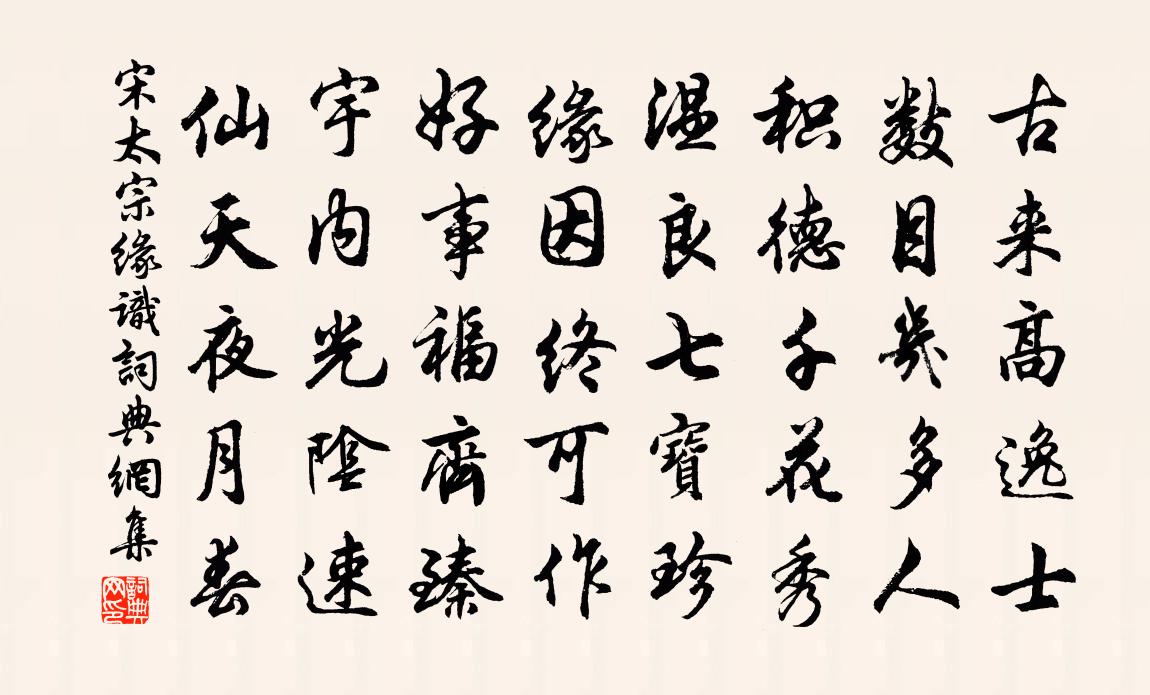 古来高逸士
数目幾多人
积德千花秀
温良七寶珍
缘因终可作
好事福齊臻
宇内光陰速
仙天夜月春
宋太宗缘識詞典網集
詞典网印